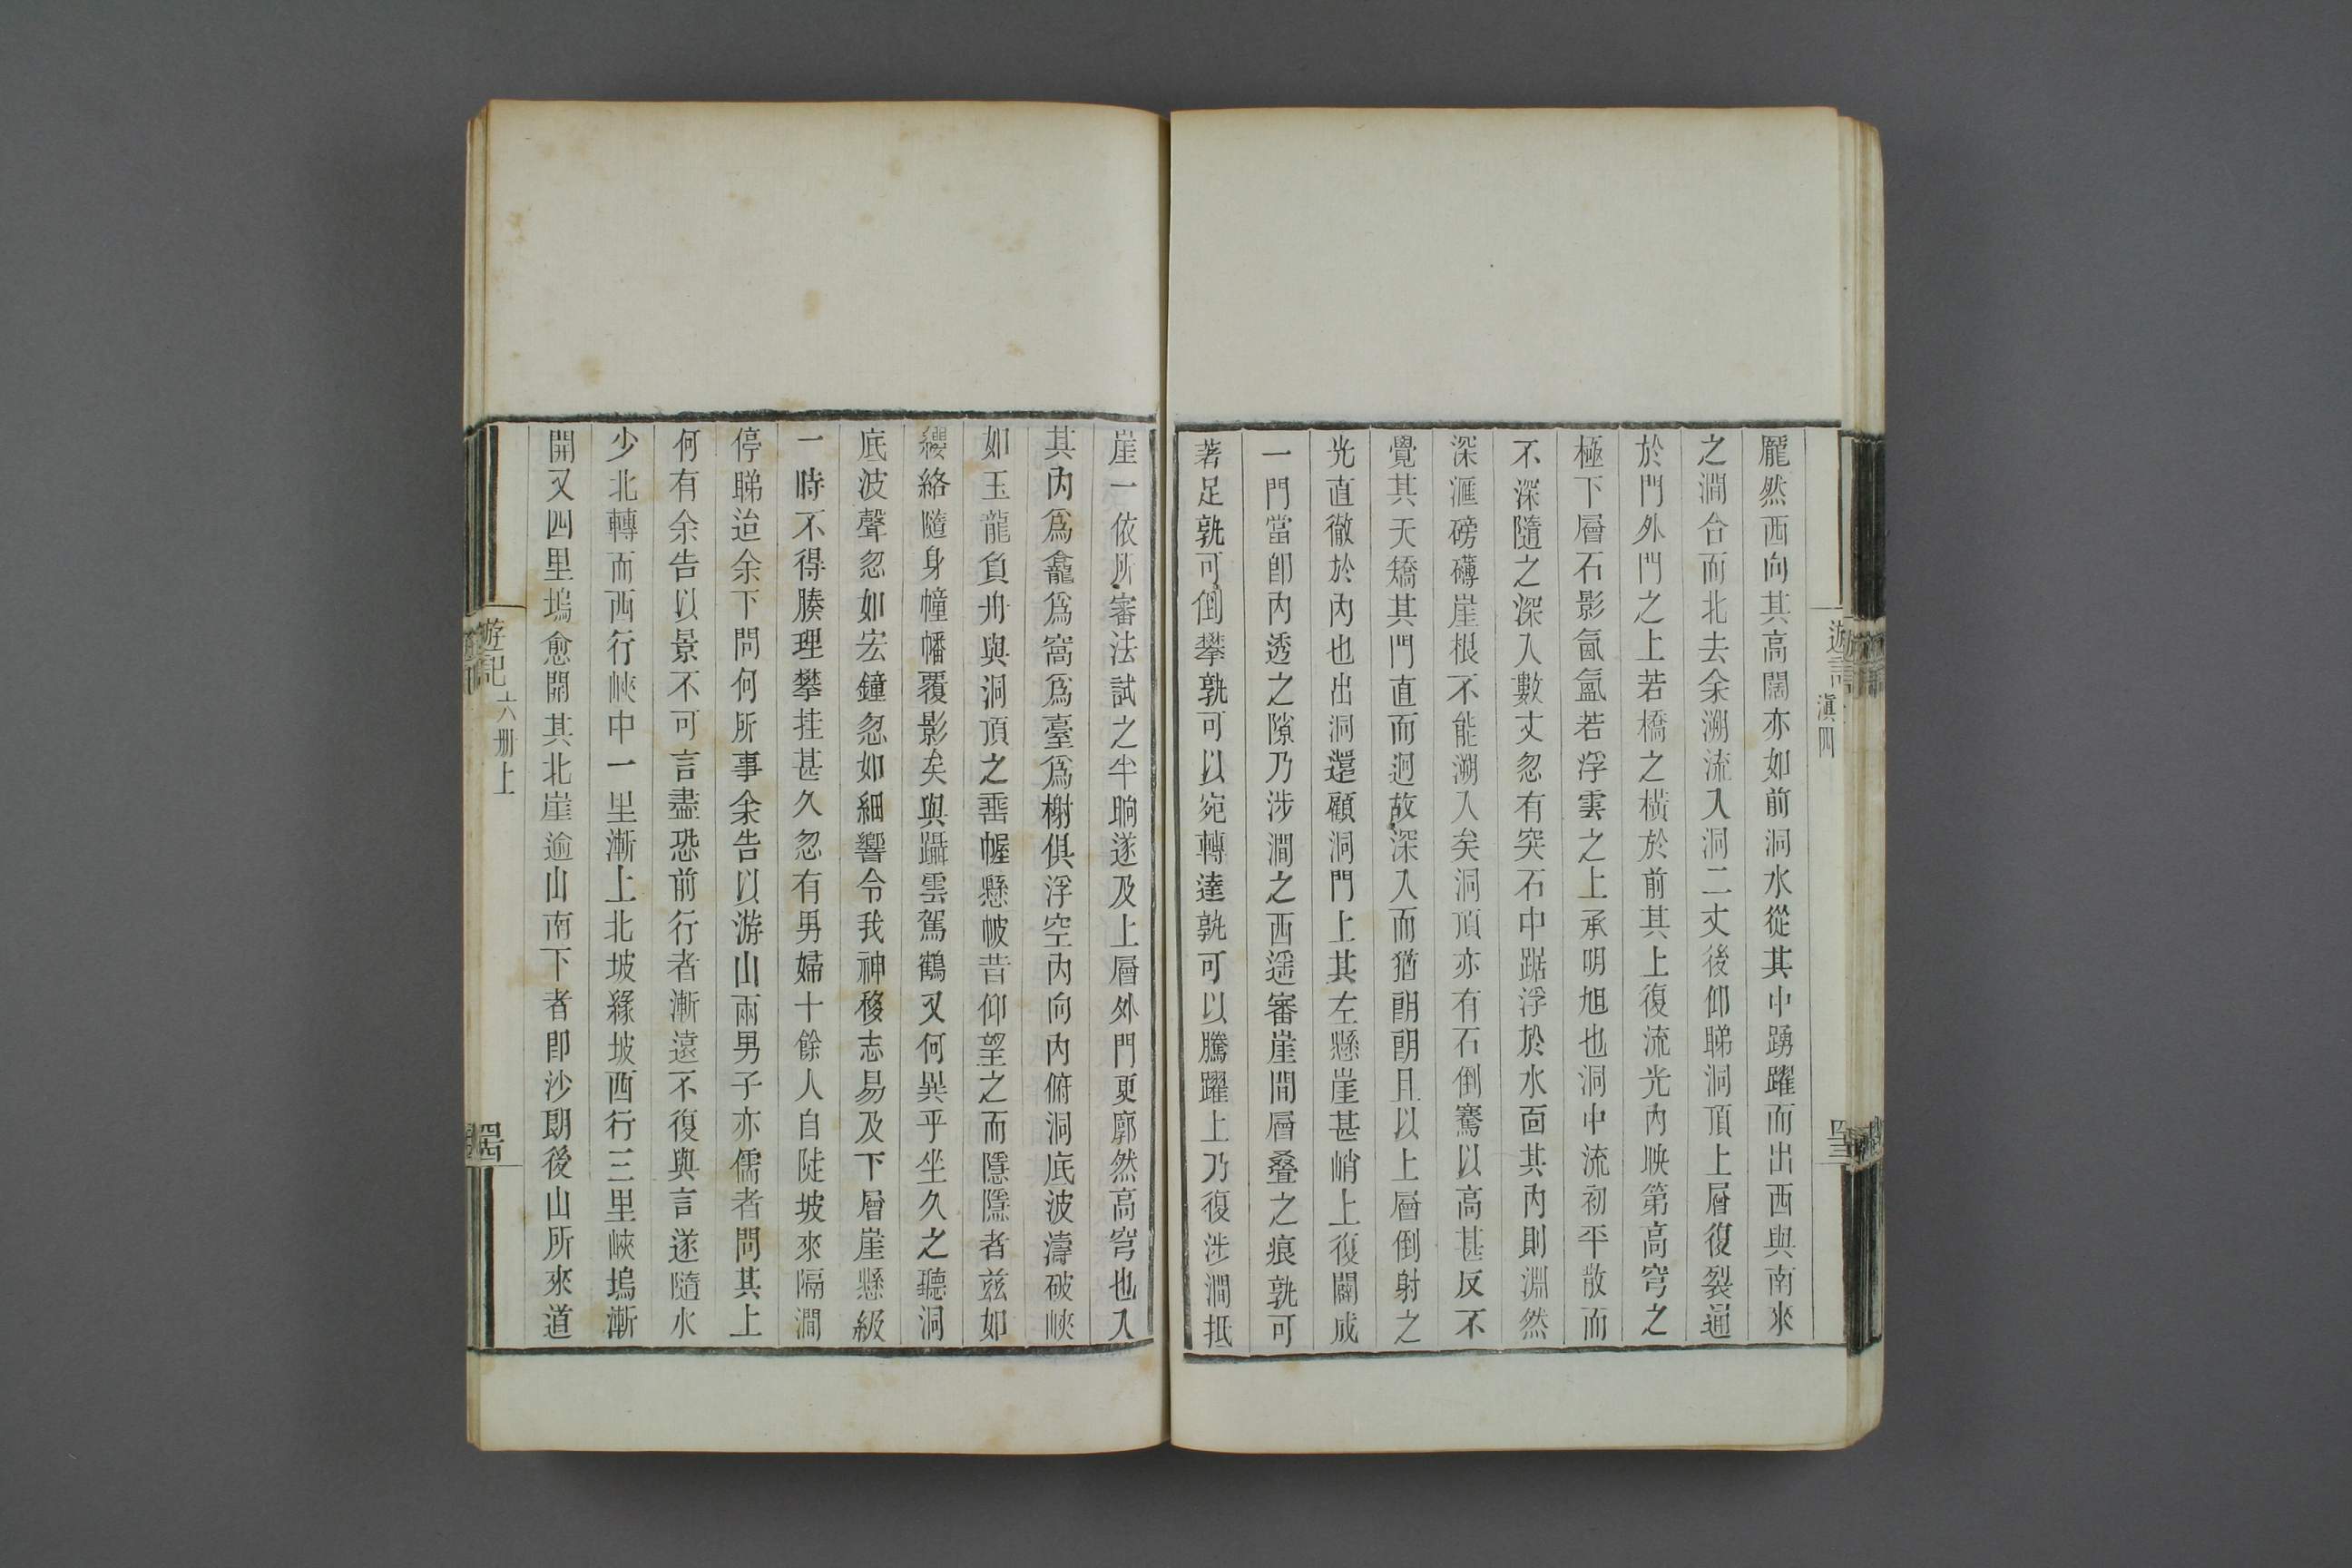 龎然西向其高闊亦如前洞水從其中踴躍而出西與南來
之澗合而北去余溯流入洞二丈後仰睇洞頂上層復裂通
於門外門之上若橋之橫於前其上復流光內映第高穹之
極下層石影氤氳若浮雲之上承明旭也洞中流初平散而
不深隨之深入數丈忽有突石中踞浮於水面其內則淵然
深滙磅礴崖根不能溯入矣洞頂亦有石倒騫以高甚反不
覺其夭矯其門直而迥故深入而猶朗朗且以上層倒射之
光直徹於內也出洞還顧洞門上其左懸崖甚峭上復闢成
一門當卽內透之隙乃涉澗之西遥審崖間層叠之痕孰可
著足孰可倒攀孰可以宛轉達孰可以騰躍上乃復涉澗抵
崖一依所審法試之半晌遂及上層外門更廓然高穹也入
其內爲龕爲窩爲臺爲榭俱浮空內向內俯洞底波濤破峽
如玉龍負舟與洞頂之垂幄懸帔昔仰望之而隱隱者兹如
纓絡隨身幢幡覆影矣與躡雲駕鶴又何異乎坐久之聽洞
底波聲忽如宏鐘忽如細響令我神移志易及下層崖懸級
一時不得腠理攀挂甚久忽有男婦十餘人自陡坡來隔澗
停睇迨余下問何所事余告以游山兩男子亦儒者問其上
何有余告以景不可言盡恐前行者漸遠不復與言遂隨水
少北轉而西行峽中一里漸上北坡緣坡西行三里峽塢漸
開又四里塢愈開其北崖逾山南下者卽沙朗後山所來道
游記 六册上
滇四